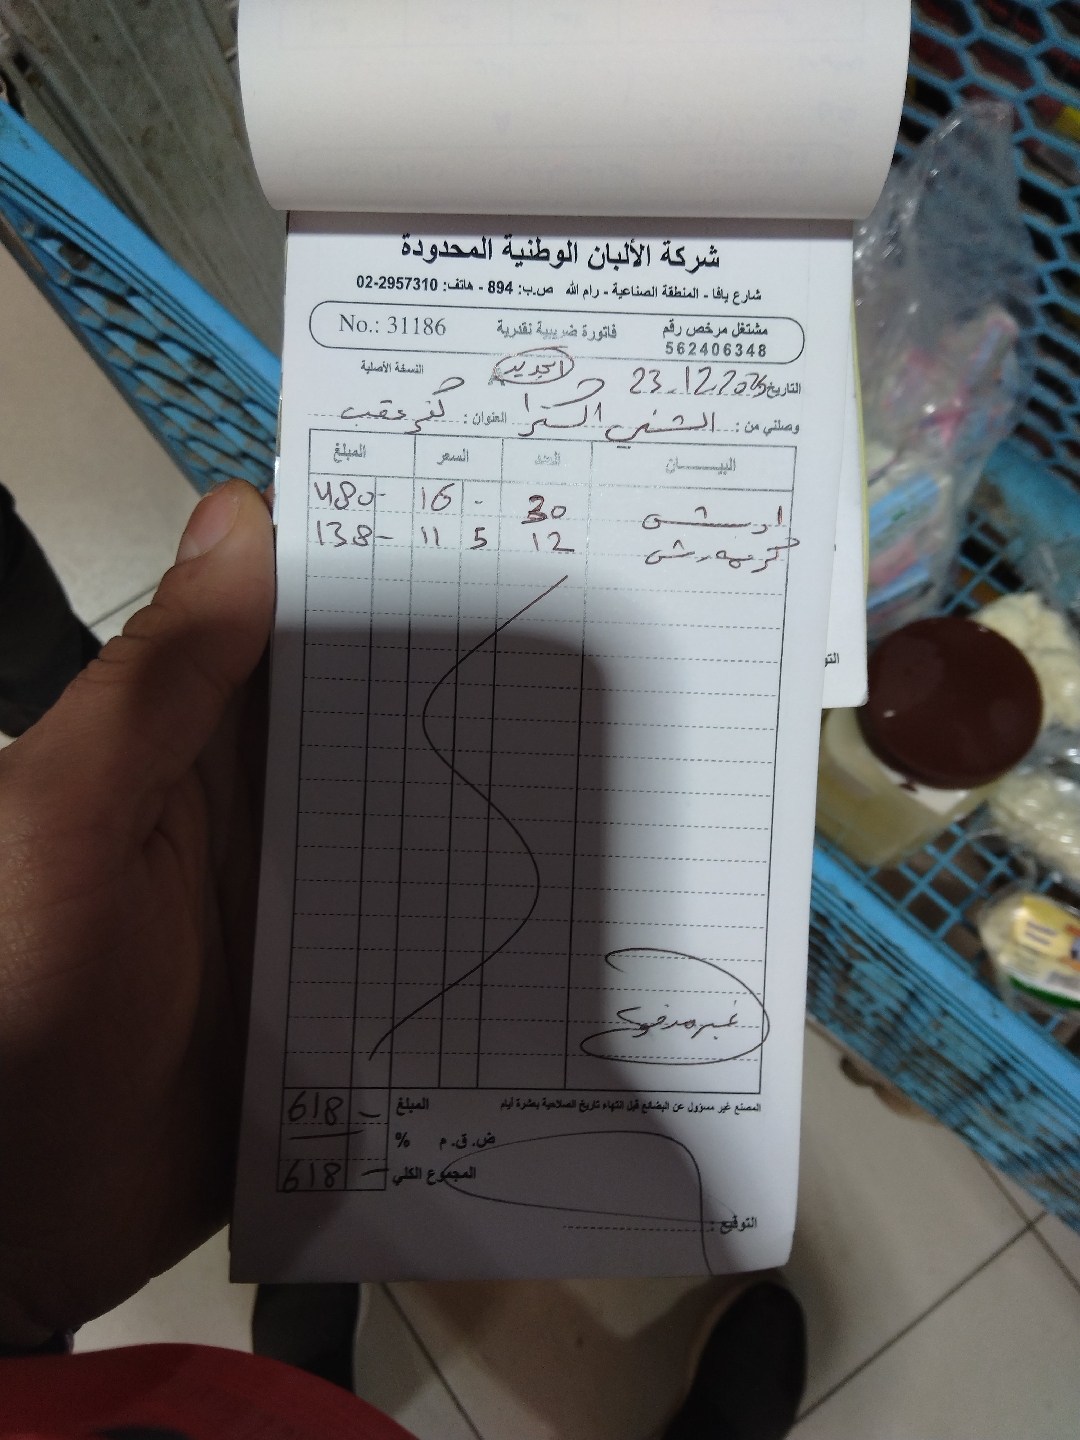 شركة الألبان الوطنية المحدودة
شارع يافا - المنطقة الصناعية - رام الله ص.ب: 894 - هاتف: 02-2957310
مشتغل مرخص رقم
562406348
فاتورة ضريبية نقدرية
No.: 31186
النسخة الأصلية
الجديد
التاريخ 23.12.2025
وصلني من : الشني اكسترا العنوان : كفر عقب
البيـــــان العدد السعر المبلغ
30 16 - 480 -
كريمه رش 12 11 5 138 -
غير مدفوع
المصنع غير مسؤول عن البضائع قبل انتهاء تاريخ الصلاحية بعشرة أيام
المبلغ 618 -
ض. ق. م %
المجموع الكلي 618 -
التوقيع :